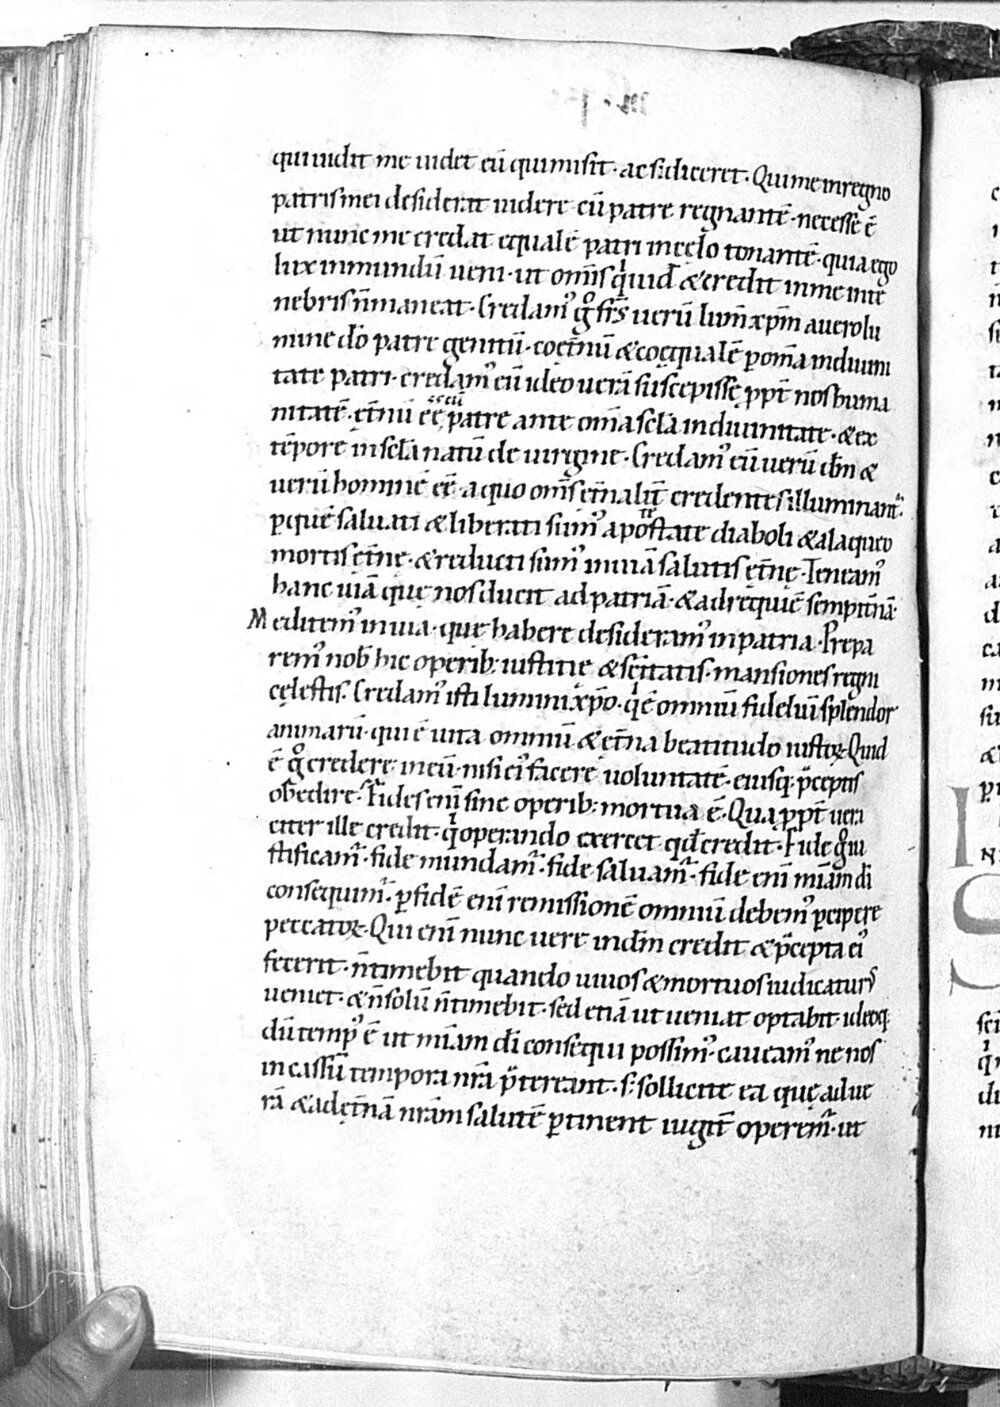 qui uidit me uidet eū qui misit · ac si diceret · Qui me in regno
patris mei desiderat uidere cū patre regnantē · necesse ē
ut nunc me credat equalē patri in cęlo tonantē · quia ego
lux in mundū ueni · ut om̅is qui uid& & credit in me in te
nebris n̄ maneat · Credam᾽ g̊ fr̄s uerū lum̅ xp̄m a uero lu
mine dō patre genitū · coęt̄nū & coęqualē p om̅a in diuini
tate patri · credam᾽ eū ideo uerā suscepisse ppt̄ nos huma
nitatē · et̄nū ēē patre ante om̅a sc̄la in diuinitate · & ex
tēpore in sc̄la natū de uirgine · Credam᾽ eū uerū dm̄ &
uerū hominē ēē a quo om̅s et̄nalit̄ credentes illuminant᾽ ·
p quē saluati & liberati sum᾽ a potestate diaboli & a laqueo
mortis et̄nę · & reducti sum᾽ in uiā salutis ęt̄nę · Teneam᾽
hanc uiā quę nos ducit ad patriā · & ad requiē sempit̄nā ·
Meditem᾽ in uia · que habere desideram᾽ in patria · Prepa
rem᾽ nob̄ hic operib; iustitie & sc̄itatis · mansiones regni
cęlestis · Credam᾽ isti lumini xp̄o · qui ē omniū fideliū splendor
animarū · qui ē uita omniū & et̄na beatitudo iustoꝝ · Quid
ē g̊ credere in eū · nisi ei᾽ facere uoluntatē · eiusq; p̄ceptis
obedire · Fides eni̅ sine operib; mortua ē · Qua ppt̄ uera
citer ille credit · qui operando exercet qd̄ credit · Fide g̊ iu
stificam᾽ · fide mundam᾽ · fide saluam᾽ · fide eni̅ miam̄ dī
consequim᾽ · p fidē eni̅ remissionē omniū debem᾽ pcipere
peccatoꝝ · Qui eni̅ nunc uere in dm̄ credit & p̄cepta ei᾽
fecerit · n̄ timebit quando uiuos & mortuos iudicatur᾽
ueniet · & n̄ solū n̄ timebit · sed etiā ut ueniat optabit · ideoq;
dū temp᾽ ē ut miam̄ dī consequi possim᾽ · caueam᾽ ne nos
in cassū tempora nr̄a p̄tereant · s; sollicite ea quę ad ue
rā & ad ęt̄nā nr̄am salutē ptinent iugit̄ operem᾽ · ut